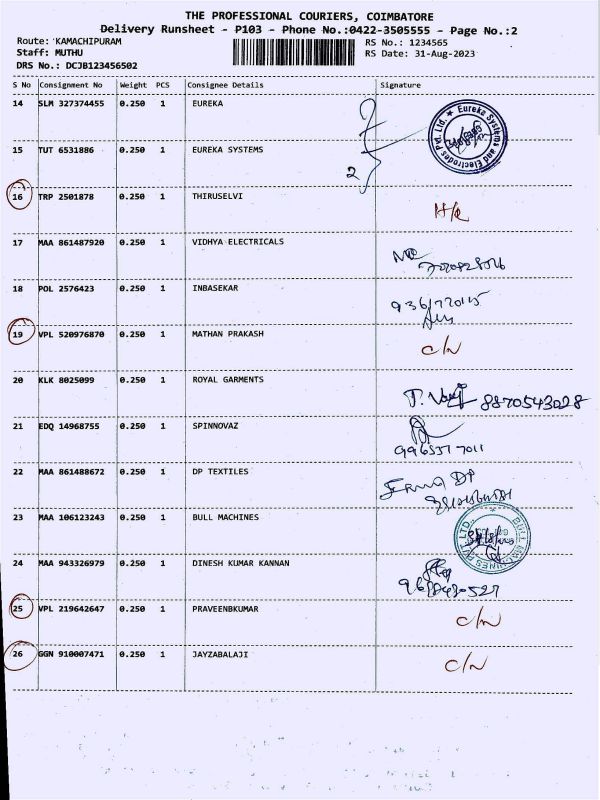 THE PROFESSIONAL COURIERS, COIMBATORE
Delivery Runsheet - P103 - Phone No.:0422-3505555 - Page No.:2
Route: KAMACHIPURAM
RS No.: 1234565
Staff: MUTHU
RS Date: 31-Aug-2023
DRS No.: DCJB123456502
S No Consignment No Weight PCS Consignee Details Signature
14 SLM 327374455 0.250 1 EUREKA
Eureka Systems and Electrodes Pvt. Ltd. ★
15 TUT 6531886 0.250 1 EUREKA SYSTEMS
2
16 TRP 2501878 0.250 1 THIRUSELVI
17 MAA 861487920 0.250 1 VIDHYA ELECTRICALS
18 POL 2576423 0.250 1 INBASEKAR
19 VPL 520976870 0.250 1 MATHAN PRAKASH C/N
20 KLK 8025099 0.250 1 ROYAL GARMENTS
8870543028
21 EDQ 14968755 0.250 1 SPINNOVAZ
22 MAA 861488672 0.250 1 DP TEXTILES
DP
23 MAA 106123243 0.250 1 BULL MACHINES
BULL MACHINES PVT LTD.,
24 MAA 943326979 0.250 1 DINESH KUMAR KANNAN
25 VPL 219642647 0.250 1 PRAVEENBKUMAR C/N
26 GGN 910007471 0.250 1 JAYZABALAJI C/N